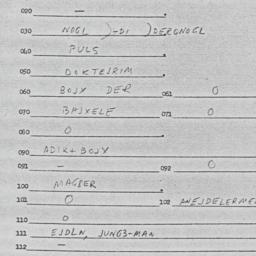 020 —
030 NOGL )-DI )DERGNOGL
040 PULS
050 DOKTEJRIM
060 BOJX DER 061 0
070 BAJXELE 071 0
080 0
090 ADIK+BOJX
091 — 092 0
100 MAGBER
101 0 102 ANEJDELERME
110 0
111 EJDLN, JUNG3-MAN
112 —